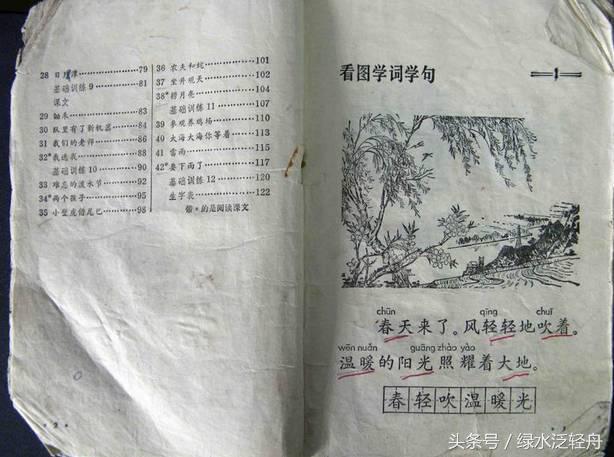 28 日月潭……79
基础训练9……81
课文
29 翰朱……83
30 队里有了新机器……84
31 我们的老师……86
32*我选我……88
基础训练10……90
33 难忘的泼水节……92
34*两个孩子……95
35 小壁虎借尾巴……98
36 农夫和蛇……101
37 坐井观天……102
38*捞月亮……104
基础训练11……107
39 参观养鸡场……110
40 大海大海你等着……113
41 雷雨……115
42*要下雨了……117
基础训练12……120
生字表……122
带*的是阅读课文
看图学词学句
1
chūn qīng chuī
春天来了。风轻轻地吹着。
wēn nuǎn guāng zhào yào
温暖的阳光照耀着大地。
春轻吹温暖光
头条号/绿水泛轻舟